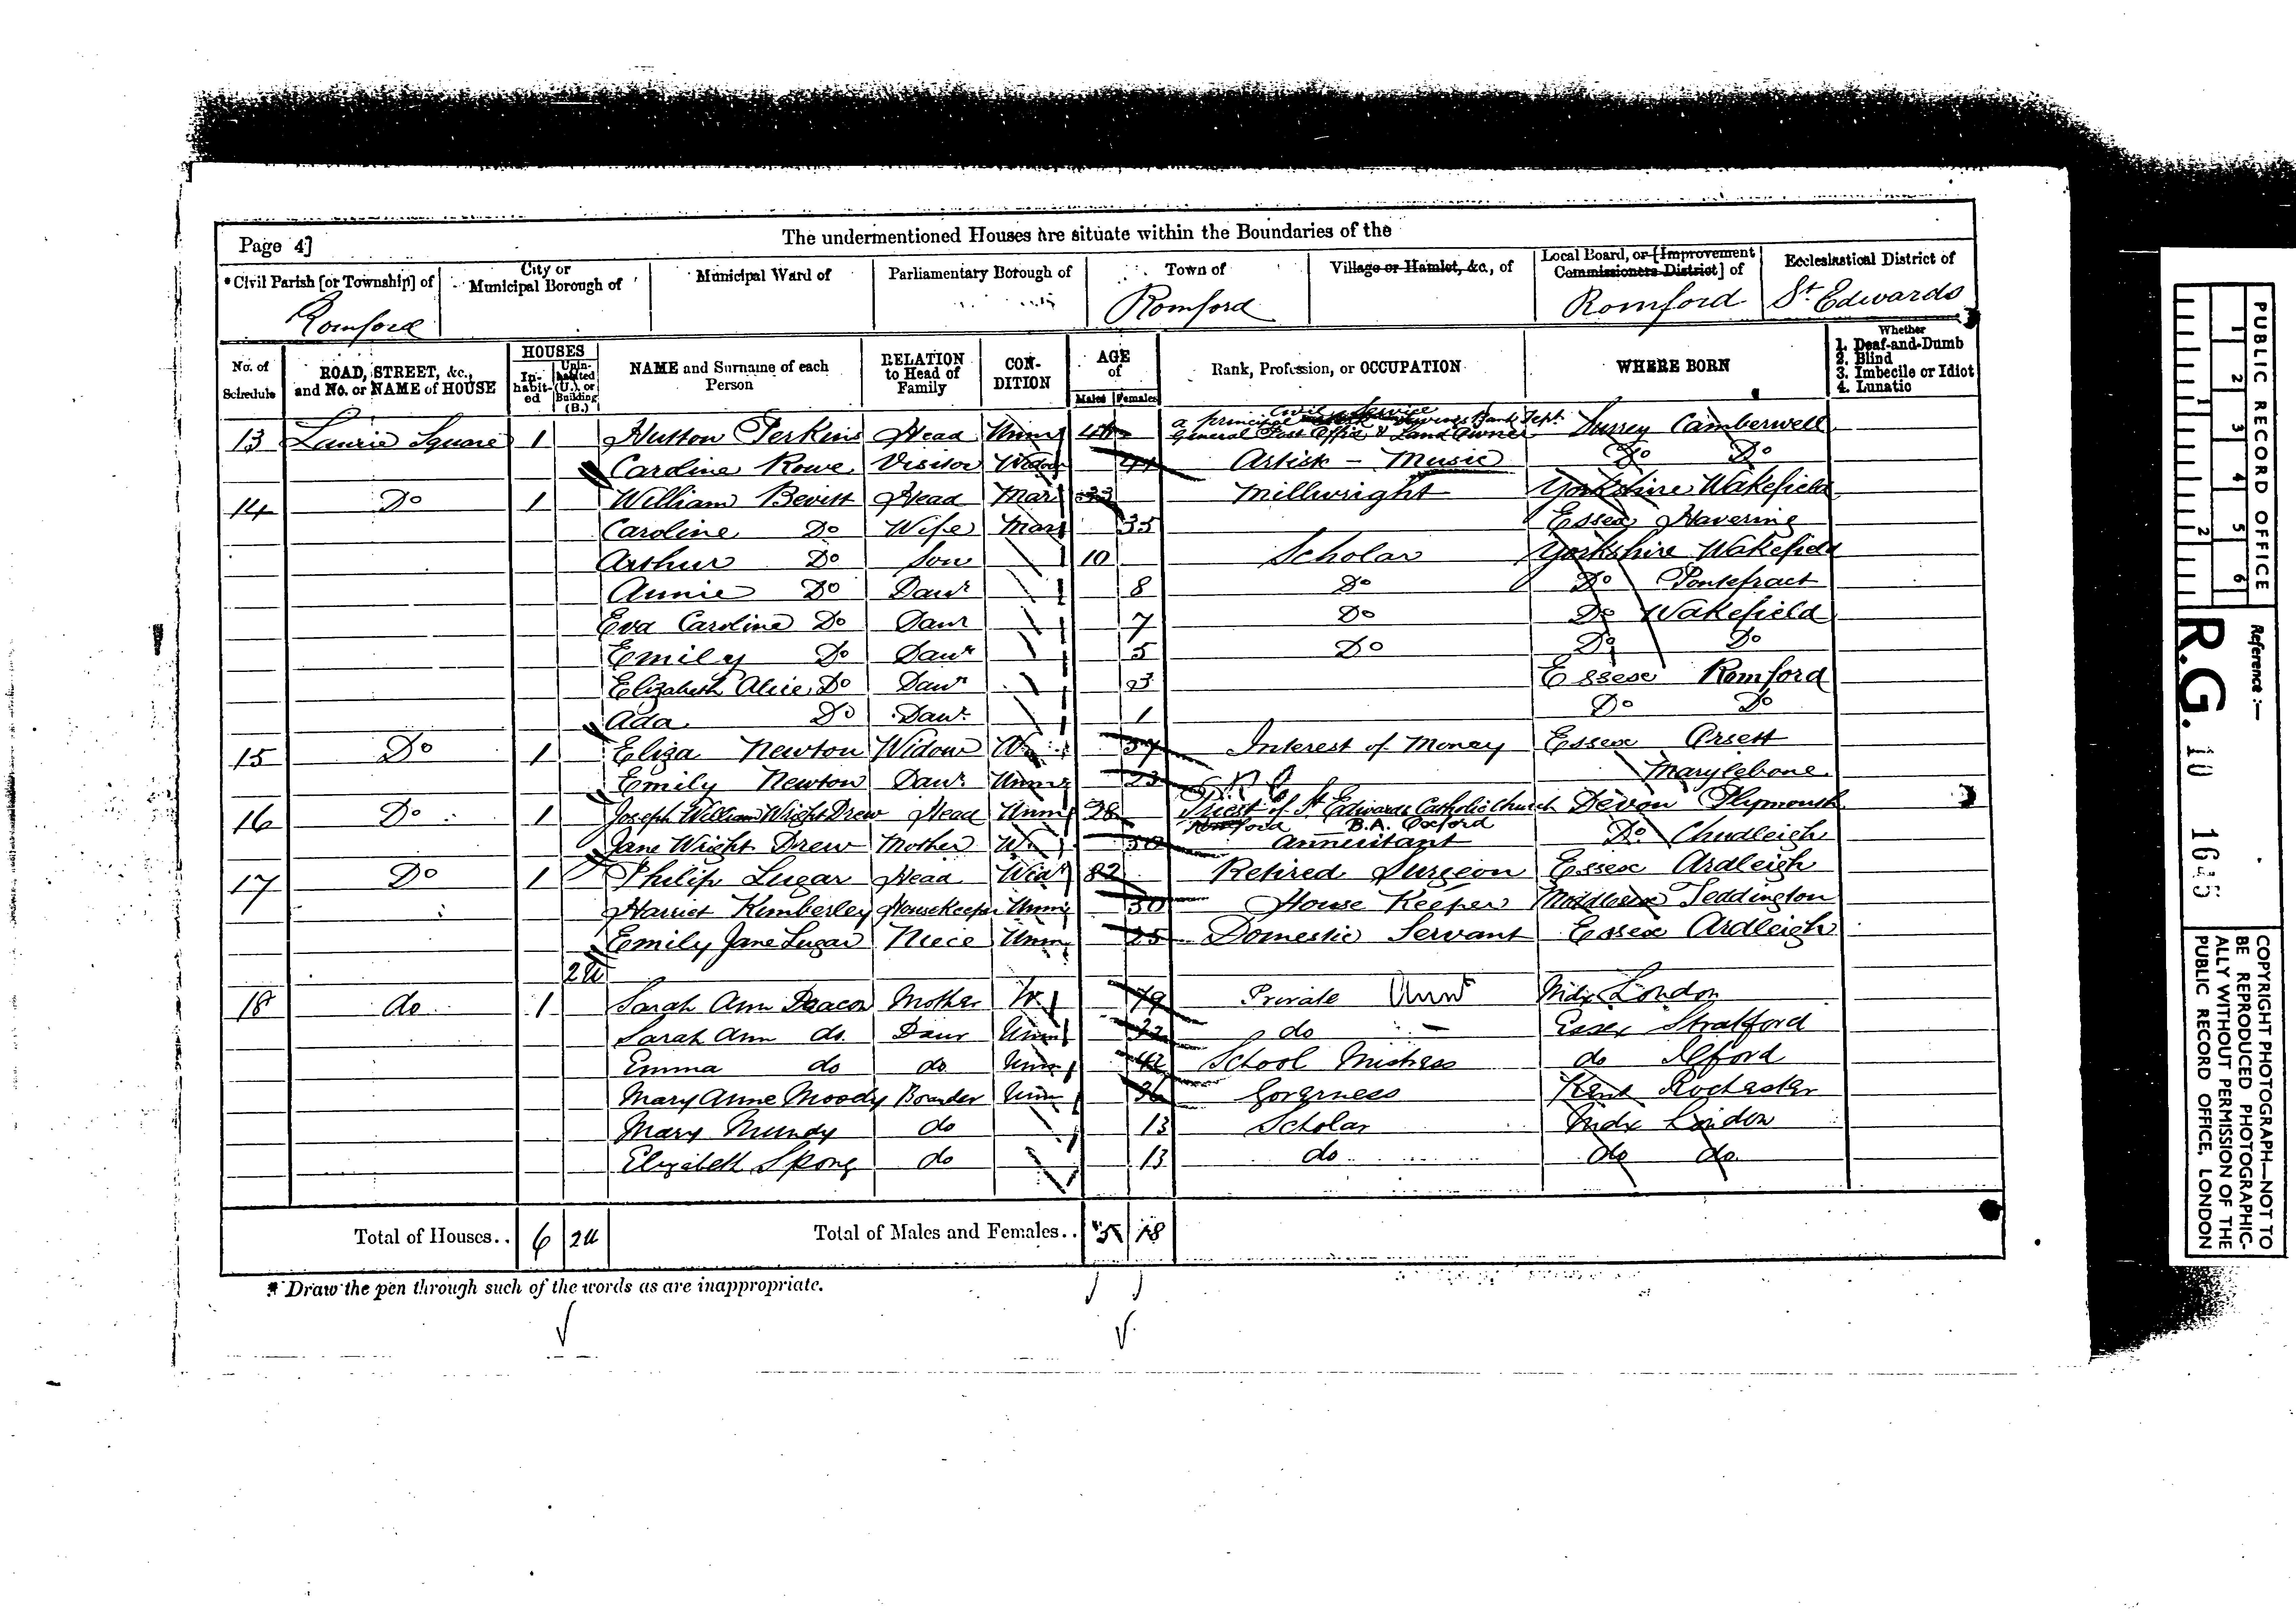 Page 4]
The undermentioned Houses are situate within the Boundaries of the
* Civil Parish [or Township] of
City or Municipal Borough of
Municipal Ward of
Parliamentary Borough of
Town of
Village or Hamlet, &c., of
Local Board, or [Improvement Commissioners District] of
Ecclesiastical District of
Romford
Romford
Romford
St. Edwards
No. of Schedule
ROAD, STREET, &c., and No. or NAME of HOUSE
HOUSES
In-habit-ed
Unin-habited (U.), or Building (B.)
NAME and Surname of each Person
RELATION to Head of Family
CON-DITION
AGE of
Males Females
Rank, Profession, or OCCUPATION
WHERE BORN
Whether
1. Deaf-and-Dumb
2. Blind
3. Imbecile or Idiot
4. Lunatic
Civil Service
a principal Savings Bank Dept.
13 Laurie Square 1 Hutton Perkins Head Unm General Post Office & Land Owner Surrey Camberwell
Caroline Rowe Visitor Widow 41 Artist - Music Do Do
14 Do 1 William Bevitt Head Mar 33 Millwright Yorkshire Wakefield
Caroline Do Wife Mar 35 Essex Havering
Arthur Do Son 10 Scholar Yorkshire Wakefield
Annie Do Daur 8 Do Do Pontefract
Eva Caroline Do Daur 7 Do Do Wakefield
Emily Do Daur 5 Do Do Do
Elizabeth Alice Do Daur 3 Essex Romford
Ada Do Daur 1 Do Do
15 Do 1 Eliza Newton Widow W 57 Interest of Money Essex Orsett
Emily Newton Daur Unm 23 Marylebone
16 Do 1 Joseph William Wright Drew Head Unm 28 Priest of St Edwards Catholic Church Devon Plymouth
Romford B.A. Oxford
Jane Wright Drew Mother W 50 Annuitant Do Chudleigh
17 Do 1 Philip Lugar Head Widr 82 Retired Surgeon Essex Ardleigh
Harriet Kimberley HouseKeeper Unm 50 House Keeper Middlesex Teddington
Emily Jane Lugar Niece Unm 25 Domestic Servant Essex Ardleigh
2 U
18 do 1 Sarah Ann Deacon Mother W 79 Private Annt Mdx London
Sarah Ann do Daur Unm do Essex Stratford
Emma do do Unm 42 School Mistress do Ilford
Mary Anne Moody Boarder Unm 36 Governess Kent Rochester
Mary Mundy do 13 Scholar Mdx London
Elizabeth Spong do 13 do do do
Total of Houses.. 6 2U Total of Males and Females.. 5 18
* Draw the pen through such of the words as are inappropriate.
PUBLIC RECORD OFFICE
1 2 3 4 5 6
1 2
Reference :—
R.G. 10
COPYRIGHT PHOTOGRAPH—NOT TO BE REPRODUCED PHOTOGRAPHIC-ALLY WITHOUT PERMISSION OF THE PUBLIC RECORD OFFICE, LONDON